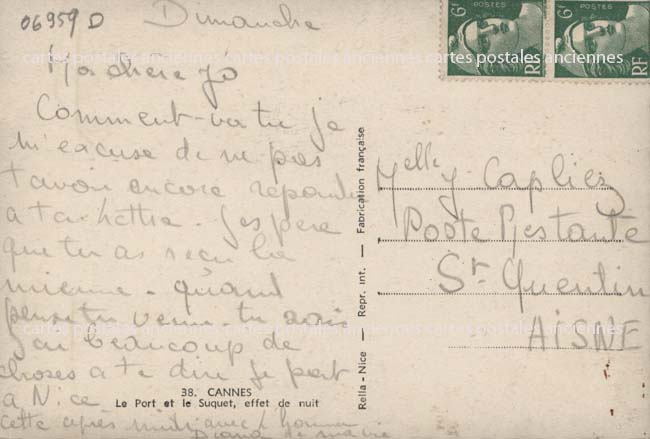 06959 D
Dimanche
Ma chère Jo
Comment vas tu je
m'excuse de ne pas
t'avoir encore répondu
a ta lettre. J'espère
que tu as reçu la
mienne. quand
pense tu venir tu sais
j'ai beaucoup de
choses a te dire je part
a Nice
cette après midi avec l'homme
38. CANNES
Le Port et le Suquet, effet de nuit
Rella - Nice — Repr. int. — Fabrication française
6F POSTES RF
6F POSTES RF
Melle J. Capliez
Poste Restante
St Quentin
AISNE
cartes postales anciennes cartes postales anciennes cartes postales anciennes
cartes postales anciennes cartes postales anciennes cartes postales anciennes